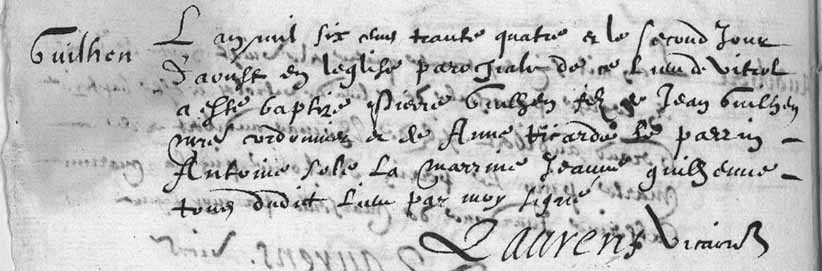 Guilhen
L an mil six cens trante quatre et le second Jour
d'aoust en leglise parochiale de ce lieu de vitrol
a esté baptizé pierre Guilhen filz de Jean Guilhen
cordonnier et de Anne Ricarde le parrin
Antoine la marrine Jeanne guilhenne
tous dudit lieu par moy signé
Laurens vicaire